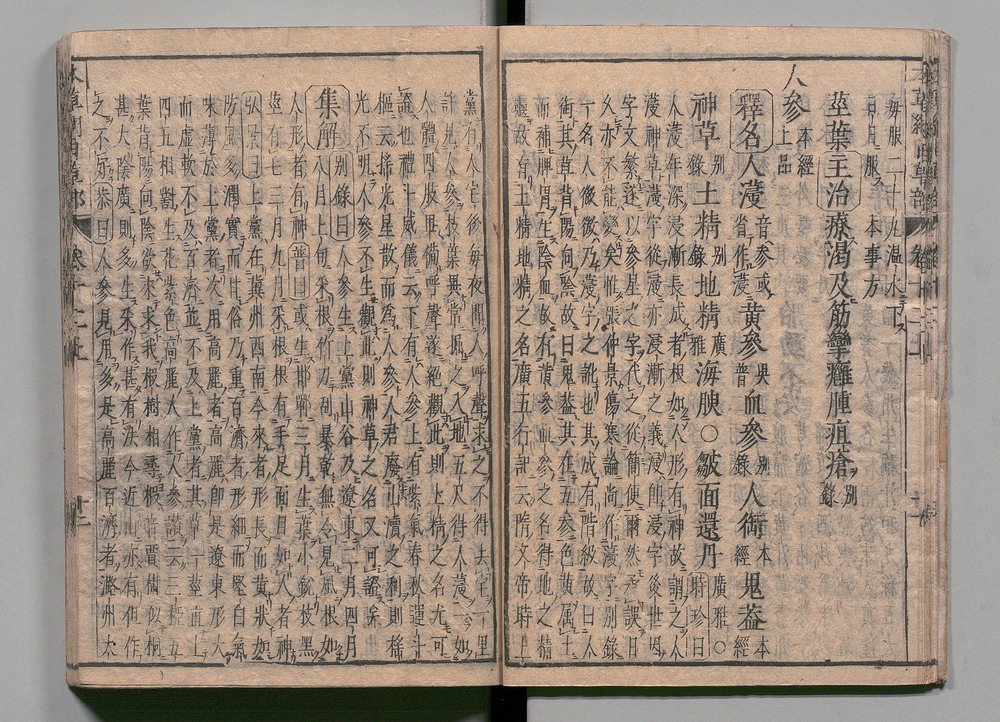 毎服二十丸温水下
日月服 本事方
莖葉主治療渴及筋攣癰腫疽瘡 別錄
人參 本經上品
釋名人薓 音參或省作蓡 黄參 吳普 血參 別錄 人銜 本經 鬼蓋 本經
神草 別錄 土精 別錄 地精 廣雅 海腴○皺面還丹 廣雅○時珍曰人
人薓年深浸漸長成者根如人形有神故謂之人
薓神草薓字從薓亦浸漸之義薓即浸字後世因
字文繁遂以參星之字代之從簡便爾然承誤日
久亦不能變矣惟張仲景傷寒論尚作薓字別錄
一名人微微乃薓字之訛也其成有階級故曰人
銜其草背陽向陰故曰鬼蓋其在五參色黄属土
而補脾胃生陰血故有黄參血參之名得地之精
靈故有土精地精之名廣五行記云隋文帝時上
黨有人宅後毎夜聞人呼聲求之不得去宅一里
許見人參枝葉異常掘之入地五尺得人薓一如
人體四肢畢備呼聲遂絶觀此則土精之名尤可
證也禮斗威儀云下有人參上有紫氣春秋運斗
樞云揺光星散而為人參人君廢山瀆之利則揺
光不明人參不生觀此則神草之名又可證矣
集解 別錄曰人參生上黨山谷及遼東二月四月
八月上旬采根竹刀刮暴乾無令見風根如
人形者有神 普曰或生邯鄲三月生葉小鋭枝黑
莖有毛三月九月采根根有手足面目如人者神
弘景曰上黨在冀州西南今來者形長而黄狀如
防風多潤實而甘俗乃重百濟者形細而堅白氣
味薄於上黨者次用高麗者高麗即是遼東形大
而虛軟不及百濟並不及上黨者其草一莖直上
四五相對生花紫色高麗人作人參讚云三椏五
葉背陽向陰欲來求我椵樹相尋椵音賈樹似桐
甚大陰廣則多生采作甚有法今近山亦有但作
之不好 恭曰人參見用多是高麗百濟者潞州太